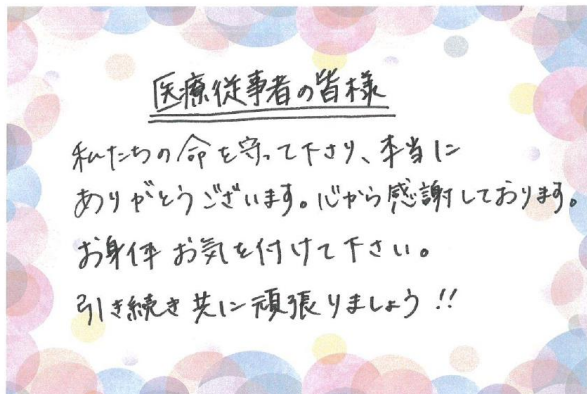 医療従事者の皆様
私たちの命を守って下さり、本当に
ありがとうございます。心から感謝しております。
お身体お気を付けて下さい。
引き続き共に頑張りましょう!!